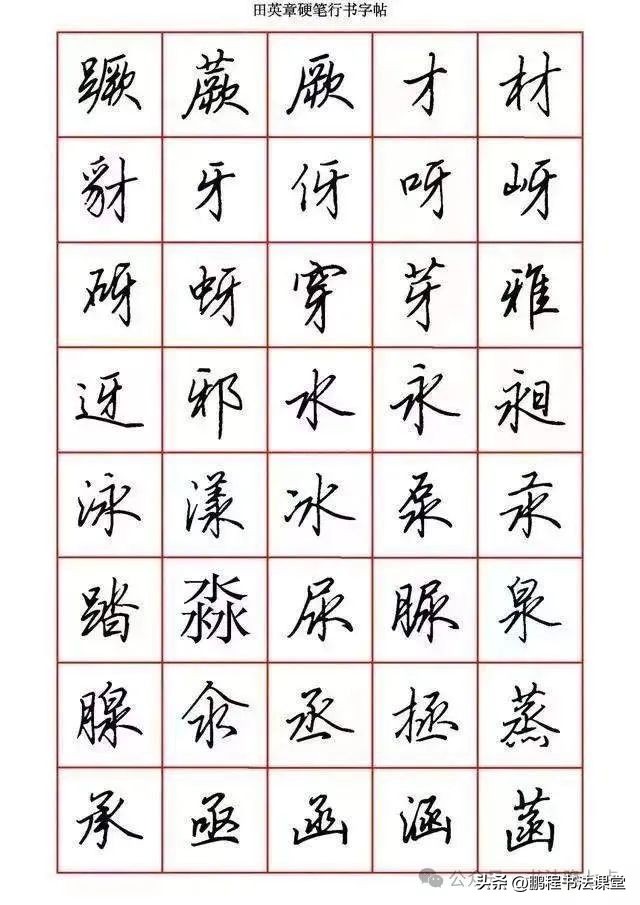 田英章硬笔行书字帖
蹶 蕨 厥 才 材
豺 牙 伢 呀 岈
砑 蚜 穿 芽 雅
迓 邪 水 永 昶
泳 漾 冰 泵 汞
踏 淼 尿 脲 泉
腺 氽 丞 拯 蒸
承 亟 函 涵 菡
公众号
头条 @鹏程书法课堂